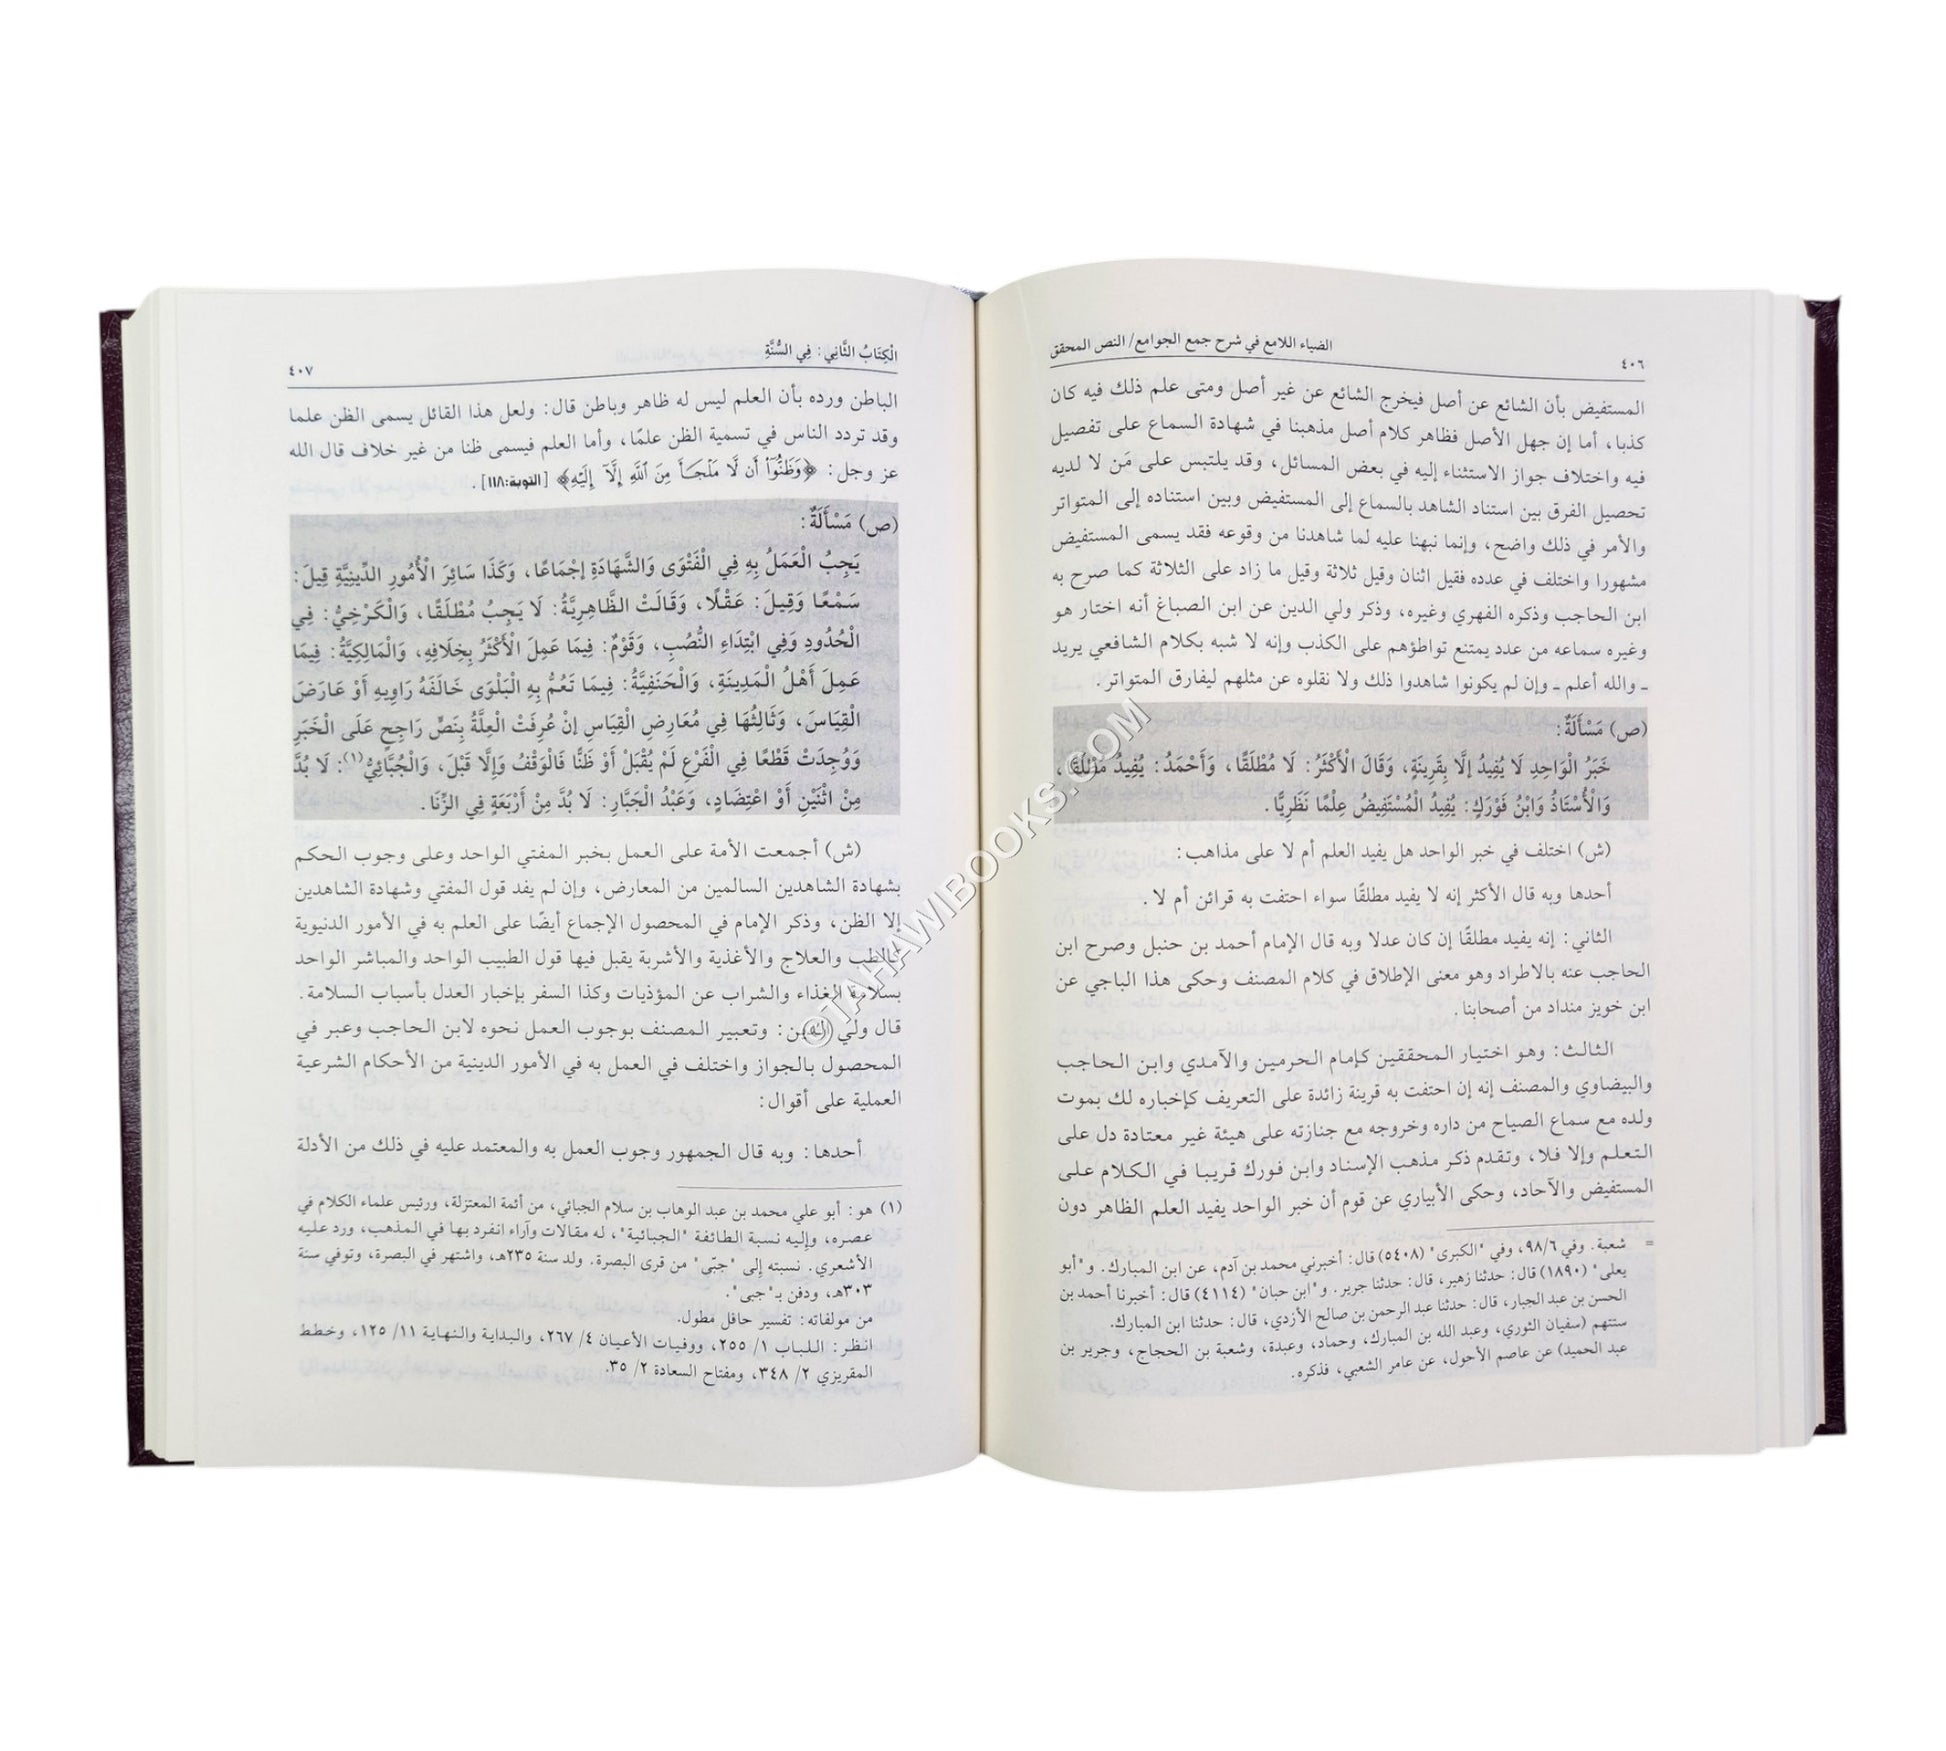 ٤٠٦
الضياء اللامع في شرح جمع الجوامع/ النص المحقق
المستفيض بأن الشائع عن أصل فيخرج الشائع عن غير أصل ومتى علم ذلك فيه كان
كذبا، أما إن جهل الأصل فظاهر كلام أصل مذهبنا في شهادة السماع على تفصيل
فيه واختلاف جواز الاستثناء إليه في بعض المسائل، وقد يلتبس على مَن لا لديه
تحصيل الفرق بين استناد الشاهد بالسماع إلى المستفيض وبين استناده إلى المتواتر
والأمر في ذلك واضح، وإنما نبهنا عليه لما شاهدنا من وقوعه فقد يسمى المستفيض
مشهورا واختلف في عدده فقيل اثنان وقيل ثلاثة وقيل ما زاد على الثلاثة كما صرح به
ابن الحاجب وذكره الفهري وغيره، وذكر ولي الدين عن ابن الصباغ أنه اختار هو
وغيره سماعه من عدد يمتنع تواطؤهم على الكذب وإنه لا شبه بكلام الشافعي يريد
ـ والله أعلم ـ وإن لم يكونوا شاهدوا ذلك ولا نقلوه عن مثلهم ليفارق المتواتر.
(ص) مَسْأَلَةٌ:
خَبَرُ الْوَاحِدِ لَا يُفِيدُ إلَّا بِقَرِينَةٍ، وَقَالَ الْأَكْثَرُ: لَا مُطْلَقًا، وَأَحْمَدُ: يُفِيدُ مُطْلَقًا،
وَالْأُسْتَاذُ وَابْنُ فَوْرَكٍ: يُفِيدُ الْمُسْتَفِيضُ عِلْمًا نَظَرِيًّا.
(ش) اختلف في خبر الواحد هل يفيد العلم أم لا على مذاهب:
أحدها وبه قال الأكثر إنه لا يفيد مطلقًا سواء احتفت به قرائن أم لا.
الثاني: إنه يفيد مطلقًا إن كان عدلا وبه قال الإمام أحمد بن حنبل وصرح ابن
الحاجب عنه بالاطراد وهو معنى الإطلاق في كلام المصنف وحكى هذا الباجي عن
ابن خويز منداد من أصحابنا.
الثالث: وهو اختيار المحققين كإمام الحرمين والآمدي وابن الحاجب
والبيضاوي والمصنف إنه إن احتفت به قرينة زائدة على التعريف كإخباره لك بموت
ولده مع سماع الصياح من داره وخروجه مع جنازته على هيئة غير معتادة دل على
التعلم وإلا فلا، وتقدم ذكر مذهب الإسناد وابن فورك قريبا في الكلام على
المستفيض والآحاد، وحكى الأبياري عن قوم أن خبر الواحد يفيد العلم الظاهر دون
= شعبة. وفي ٩٨/٦، وفي "الكبرى" (٥٤٠٨) قال: أخبرني محمد بن آدم، عن ابن المبارك. و"أبو
يعلى" (١٨٩٠) قال: حدثنا زهير، قال: حدثنا جرير. و"ابن حبان" (٤١١٤) قال: أخبرنا أحمد بن
الحسن بن عبد الجبار، قال: حدثنا عبد الرحمن بن صالح الأزدي، قال: حدثنا ابن المبارك.
ستتهم (سفيان الثوري، وعبد الله بن المبارك، وحماد، وعبدة، وشعبة بن الحجاج، وجرير بن
عبد الحميد) عن عاصم الأحول، عن عامر الشعبي، فذكره.
الْكِتَابُ الثَّانِي: فِي السُّنَّةِ
٤٠٧
الباطن ورده بأن العلم ليس له ظاهر وباطن قال: ولعل هذا القائل يسمى الظن علما
وقد تردد الناس في تسمية الظن علمًا، وأما العلم فيسمى ظنا من غير خلاف قال الله
عز وجل: ﴿وَظَنُّوٓاْ أَن لَّا مَلۡجَأَ مِنَ ٱللَّهِ إِلَّآ إِلَيۡهِ﴾ [التوبة:١١٨].
(ص) مَسْأَلَةٌ:
يَجِبُ الْعَمَلُ بِهِ فِي الْفَتْوَى وَالشَّهَادَةِ إجْمَاعًا، وَكَذَا سَائِرَ الْأُمُورِ الدِّينِيَّةِ قِيلَ:
سَمْعًا وَقِيلَ: عَقْلًا، وَقَالَتْ الظَّاهِرِيَّةُ: لَا يَجِبُ مُطْلَقًا، وَالْكَرْخِيُّ: فِي
الْحُدُودِ وَفِي ابْتِدَاءِ النُّصُبِ، وَقَوْمٌ: فِيمَا عَمِلَ الْأَكْثَرُ بِخِلَافِهِ، وَالْمَالِكِيَّةُ: فِيمَا
عَمِلَ أَهْلُ الْمَدِينَةِ، وَالْحَنَفِيَّةُ: فِيمَا تَعُمُّ بِهِ الْبَلْوَى خَالَفَهُ رَاوِيهِ أَوْ عَارَضَ
الْقِيَاسَ، وَثَالِثُهَا فِي مُعَارِضِ الْقِيَاسِ إنْ عُرِفَتْ الْعِلَّةُ بِنَصٍّ رَاجِحٍ عَلَى الْخَبَرِ
وَوُجِدَتْ قَطْعًا فِي الْفَرْعِ لَمْ يُقْبَلْ أَوْ ظَنًّا فَالْوَقْفُ وَإِلَّا قَبْلَ، وَالْجُبَّائِيُّ(١): لَا بُدَّ
مِنْ اثْنَيْنِ أَوْ اعْتِضَادٍ، وَعَبْدُ الْجَبَّارِ: لَا بُدَّ مِنْ أَرْبَعَةٍ فِي الزِّنَا.
(ش) أجمعت الأمة على العمل بخبر المفتي الواحد وعلى وجوب الحكم
بشهادة الشاهدين السالمين من المعارض، وإن لم يفد قول المفتي وشهادة الشاهدين
إلا الظن، وذكر الإمام في المحصول الإجماع أيضًا على العلم به في الأمور الدنيوية
كالطب والعلاج والأغذية والأشربة يقبل فيها قول الطبيب الواحد والمباشر الواحد
بسلامة الغذاء والشراب عن المؤذيات وكذا السفر بإخبار العدل بأسباب السلامة.
قال ولي الدين: وتعبير المصنف بوجوب العمل نحوه لابن الحاجب وعبر في
المحصول بالجواز واختلف في العمل به في الأمور الدينية من الأحكام الشرعية
العملية على أقوال:
أحدها: وبه قال الجمهور وجوب العمل به والمعتمد عليه في ذلك من الأدلة
(١) هو: أبو علي محمد بن عبد الوهاب بن سلام الجبائي، من أئمة المعتزلة، ورئيس علماء الكلام في
عصره، وإليه نسبة الطائفة "الجبائية"، له مقالات وآراء انفرد بها في المذهب، ورد عليه
الأشعري. نسبته إلى "جبّى" من قرى البصرة. ولد سنة ٢٣٥هـ، واشتهر في البصرة، وتوفي سنة
٣٠٣هـ، ودفن بـ"جبى".
من مولفاته: تفسير حافل مطول.
انظر: اللباب ١/ ٢٥٥، ووفيات الأعيان ٤/ ٢٦٧، والبداية والنهاية ١١/ ١٢٥، وخطط
المقريزي ٢/ ٣٤٨، ومفتاح السعادة ٢/ ٣٥.
©TAHAWIBOOKS.COM